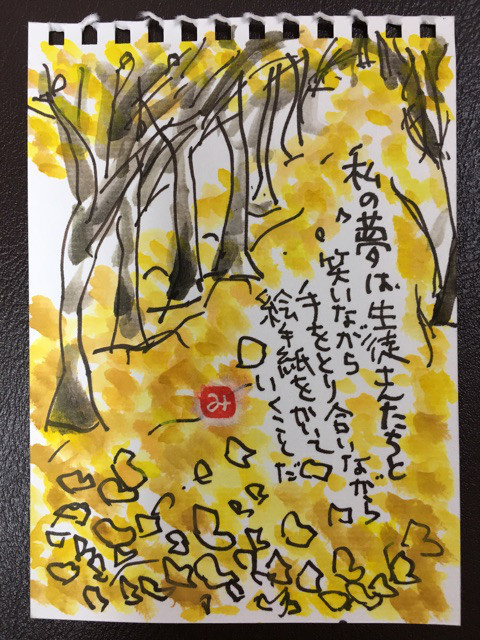 私の夢は生徒さんたちと
笑いながら
手をとり合いながら
絵手紙をかいて
いくことだ
み